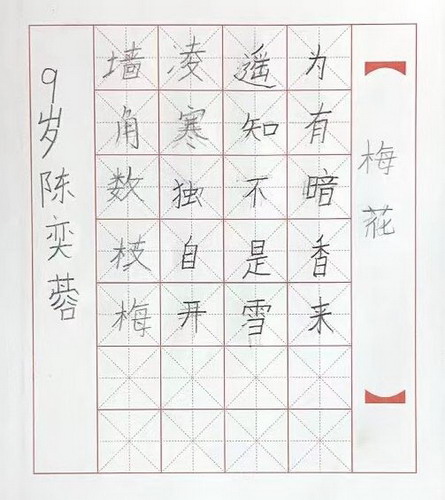 梅花
墙角数枝梅
凌寒独自开
遥知不是雪
为有暗香来
9岁陈奕蓉